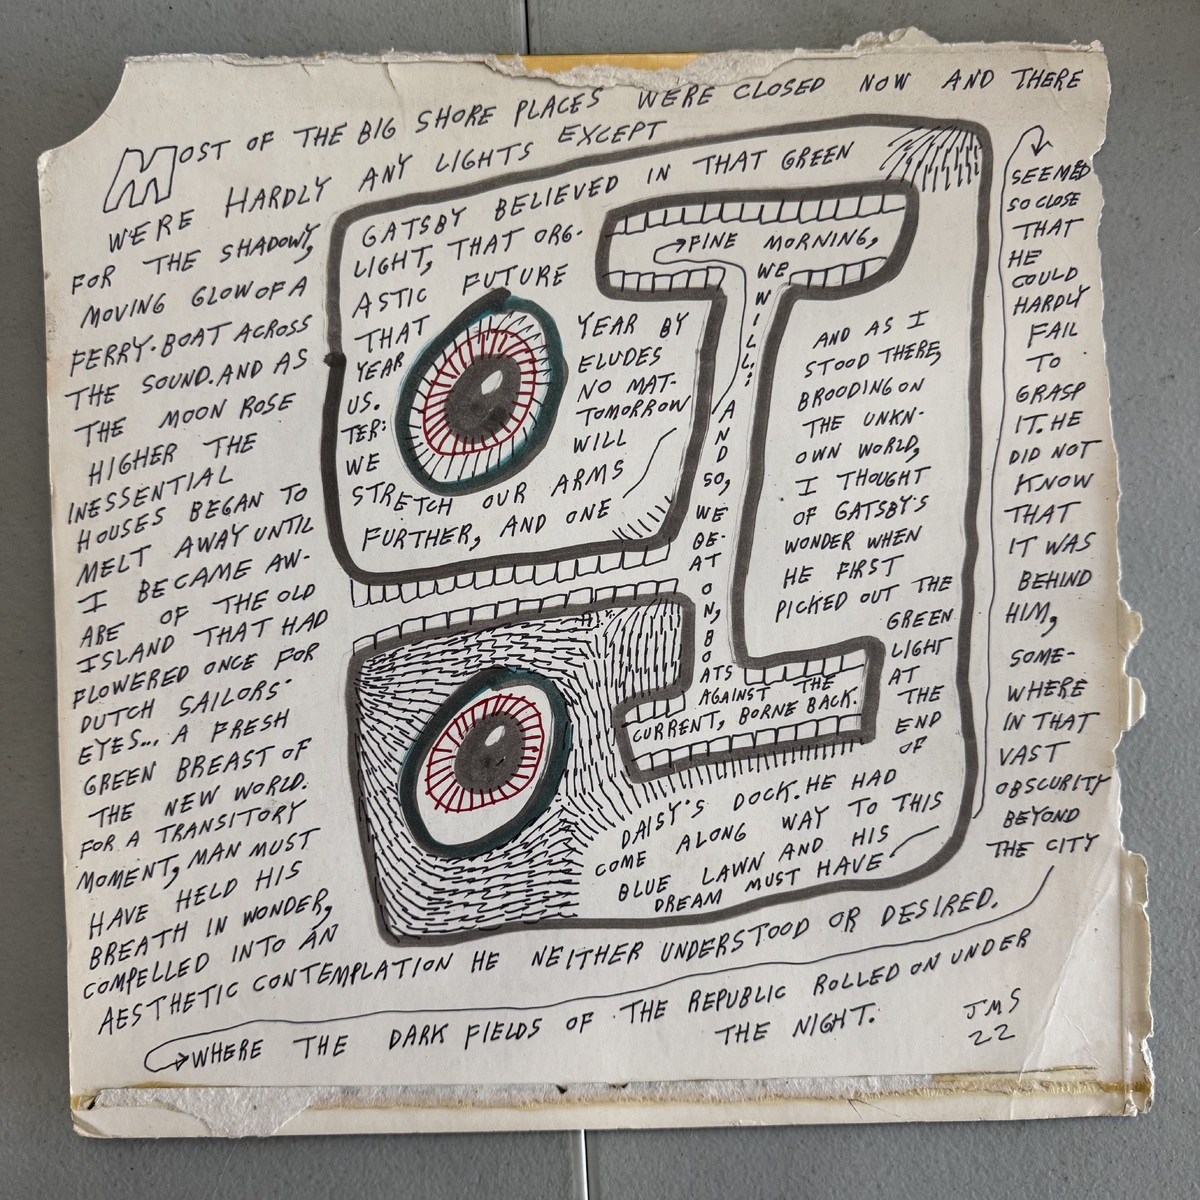 MOST OF THE BIG SHORE PLACES WERE CLOSED NOW AND THERE
WERE HARDLY ANY LIGHTS EXCEPT
FOR THE SHADOWY,
MOVING GLOW OF A
FERRY-BOAT ACROSS
THE SOUND. AND AS
THE MOON ROSE
HIGHER THE
INESSENTIAL
HOUSES BEGAN TO
MELT AWAY UNTIL
I BECAME AW-
ARE OF THE OLD
ISLAND THAT HAD
FLOWERED ONCE FOR
DUTCH SAILORS'
EYES... A FRESH
GREEN BREAST OF
THE NEW WORLD.
FOR A TRANSITORY
MOMENT, MAN MUST
HAVE HELD HIS
BREATH IN WONDER,
COMPELLED INTO AN
AESTHETIC CONTEMPLATION HE NEITHER UNDERSTOOD OR DESIRED.
AND AS I
STOOD THERE,
BROODING ON
THE UNKN-
OWN WORLD,
I THOUGHT
OF GATSBY'S
WONDER WHEN
HE FIRST
PICKED OUT THE
GREEN
LIGHT
AT
THE
END
OF
DAISY'S DOCK. HE HAD
COME ALONG WAY TO THIS
BLUE LAWN AND HIS
DREAM MUST HAVE
SEEMED
SO CLOSE
THAT
HE
COULD
HARDLY
FAIL
TO
GRASP
IT. HE
DID NOT
KNOW
THAT
IT WAS
BEHIND
HIM,
SOME-
WHERE
IN THAT
VAST
OBSCURITY
BEYOND
THE CITY
WHERE THE DARK FIELDS OF THE REPUBLIC ROLLED ON UNDER
THE NIGHT.
GATSBY BELIEVED IN THAT GREEN
LIGHT, THAT ORG-
ASTIC FUTURE
THAT YEAR BY
YEAR ELUDES
US. NO MAT-
TER: TOMORROW
WE WILL
STRETCH OUR ARMS
FURTHER, AND ONE
FINE MORNING,
WE
WILL:
AND
SO,
WE
BE-
AT
ON,
BO
ATS
AGAINST THE
CURRENT, BORNE BACK.
JMS
22